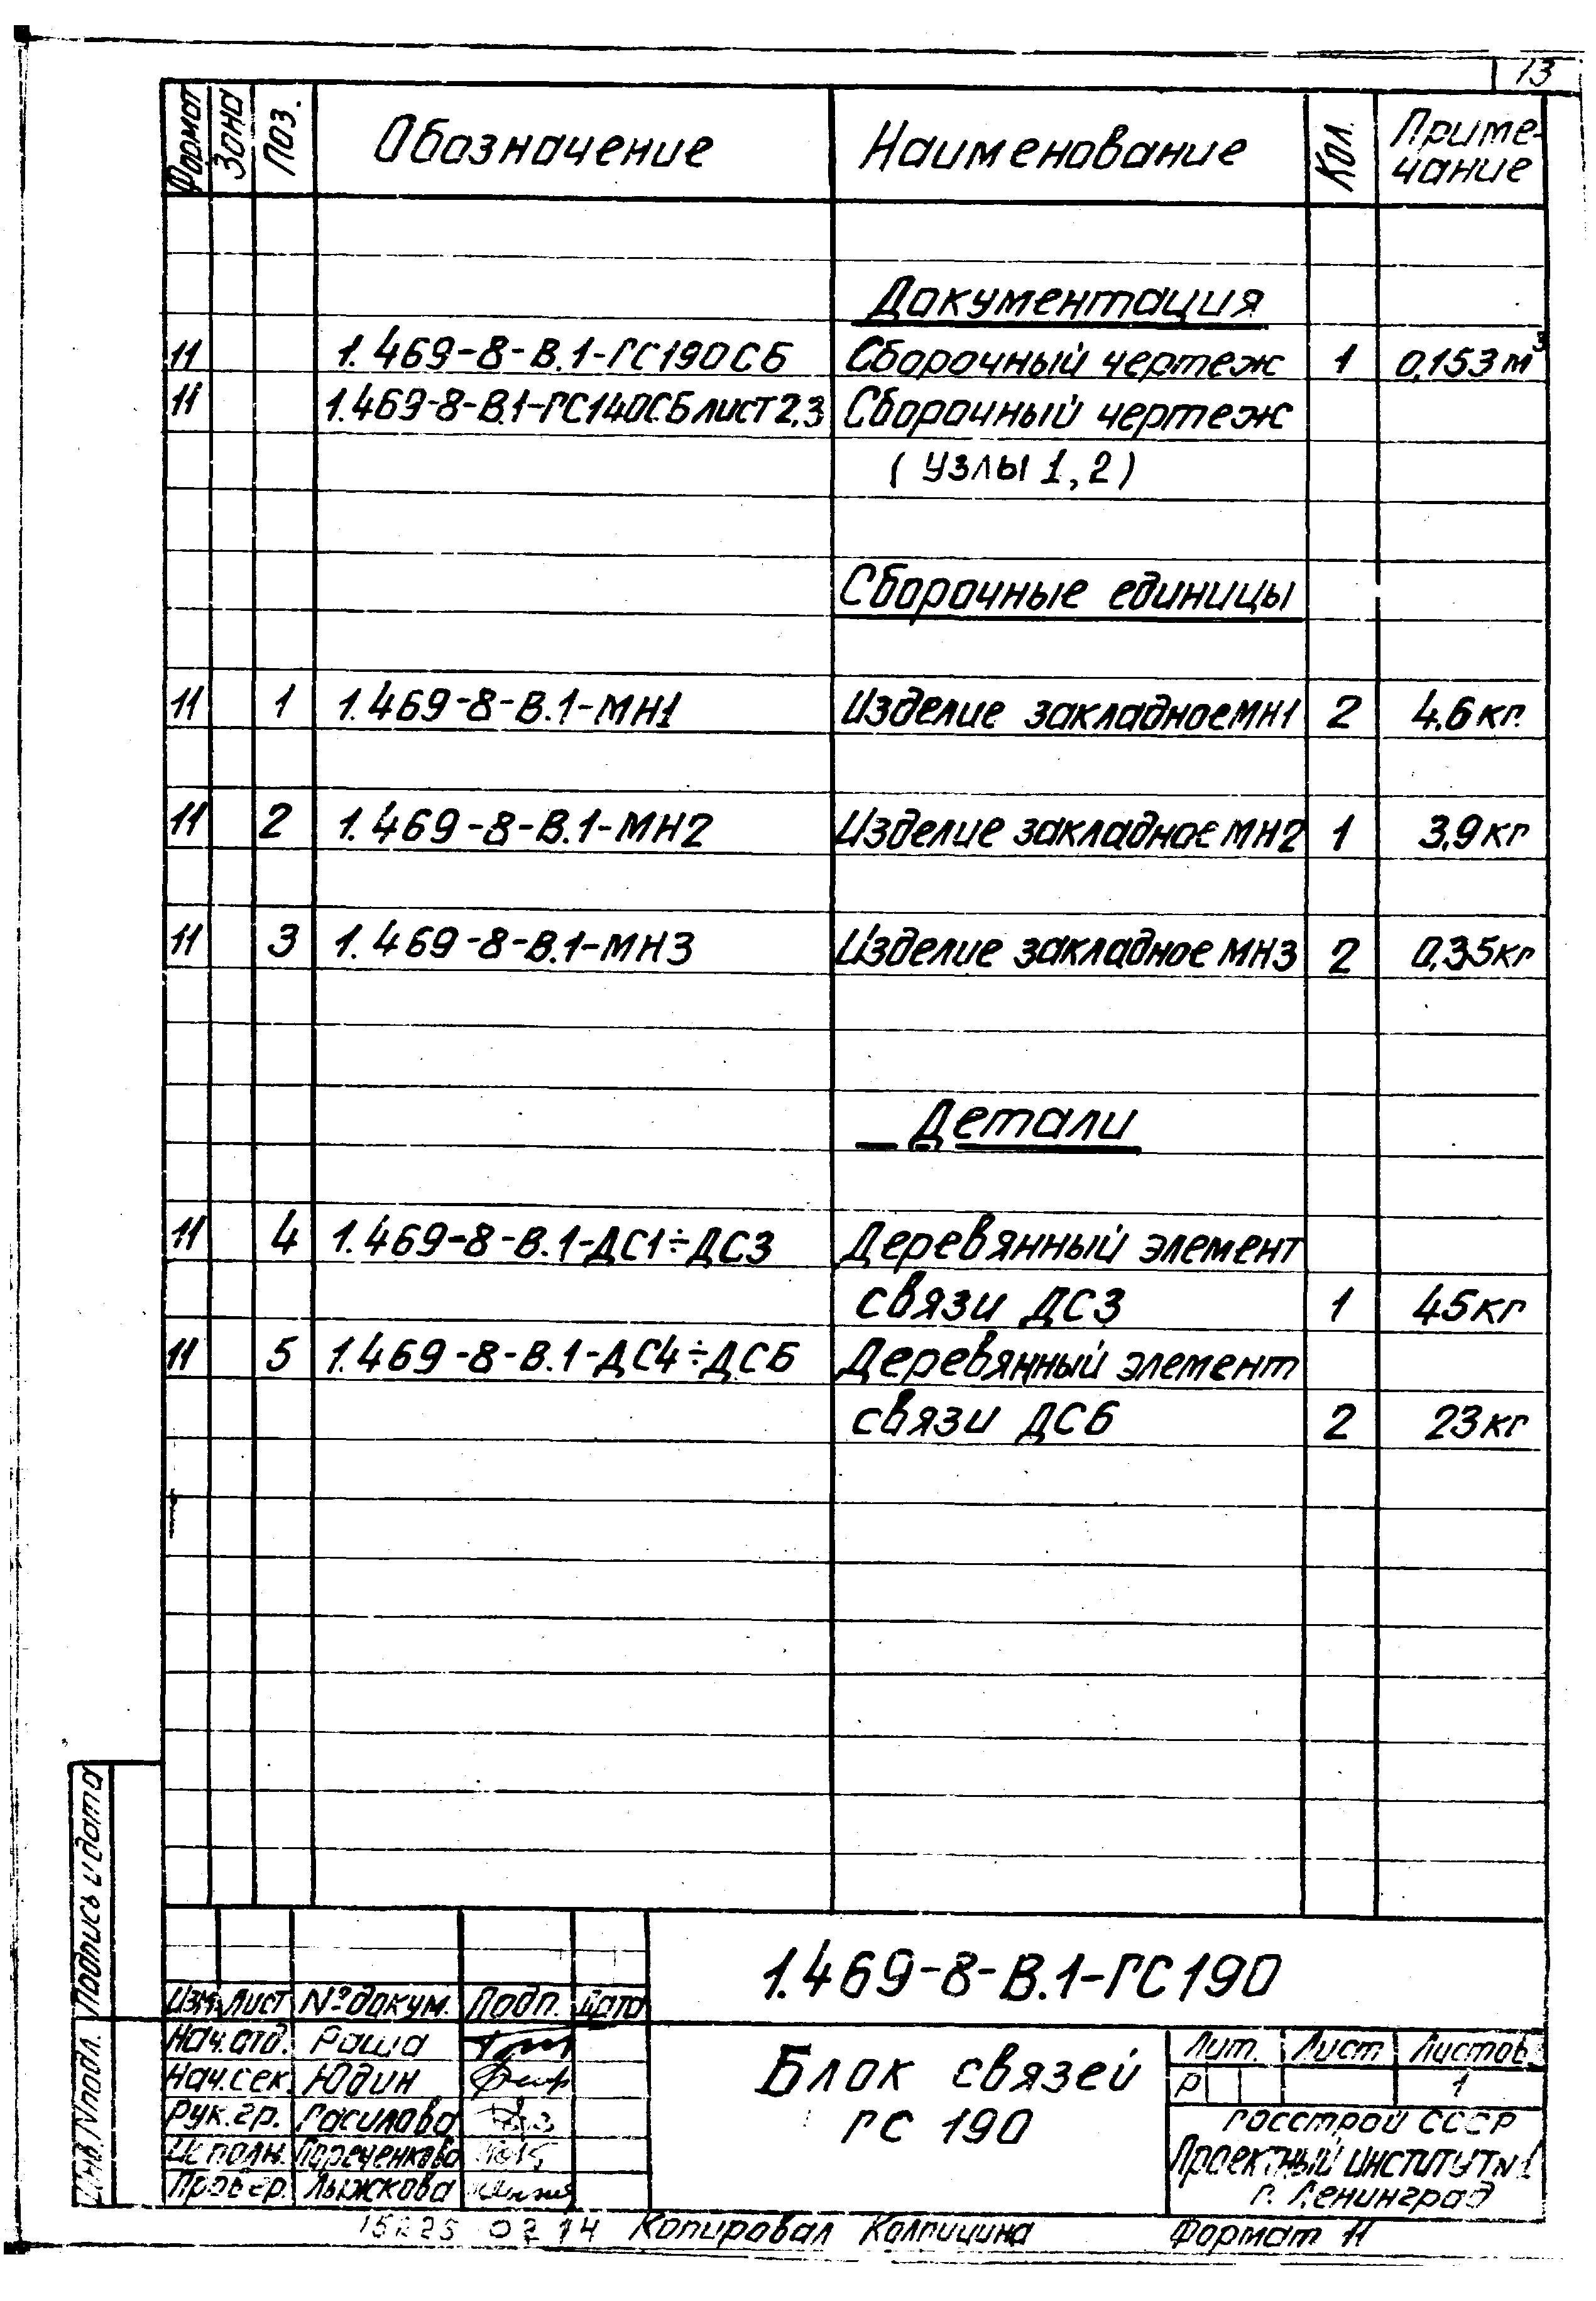 13
Формат Зона Поз. Обозначение Наименование Кол. Приме-
чание
Документация
11 1.469-8-В.1-ГС190СБ Сборочный чертеж 1 0,153 м³
11 1.469-8-В.1-ГС140СБ лист 2,3 Сборочный чертеж
(узлы 1,2)
Сборочные единицы
11 1 1.469-8-В.1-МН1 Изделие закладное МН1 2 4.6 кг.
11 2 1.469-8-В.1-МН2 Изделие закладное МН2 1 3,9 кг
11 3 1.469-8-В.1-МН3 Изделие закладное МН3 2 0,35 кг
Детали
11 4 1.469-8-В.1-ДС1÷ДС3 Деревянный элемент
связи ДС3 1 45 кг
11 5 1.469-8-В.1-ДС4÷ДС6 Деревянный элемент
связи ДС6 2 23 кг
Подпись и дата
Инв. N подл.
1.469-8-В.1-ГС190
Изм. Лист № докум. Подп. Дата
Нач. отд. Раша
Нач. сек. Юдин
Рук. гр. Гасилова
Исполн.
Провер. Лыжкова
Блок связей
ГС 190
Лит. Лист Листов
Р 1
Госстрой СССР
Проектный институт N1
г. Ленинград
15225 02 14 Копировал Колпицина Формат 11